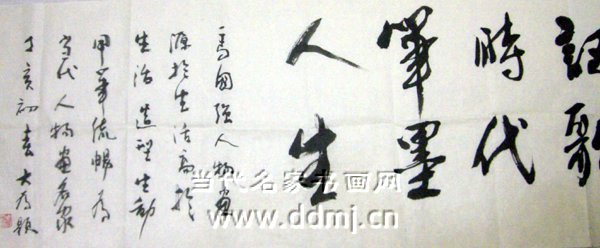 謳歌
時代
筆墨
人生
馬国强人物畫
源於生活高於
生活造型生動
用筆流暢為
当代人物畫名家
丁亥初春大为題
当代名家书画网
www.ddmj.cn